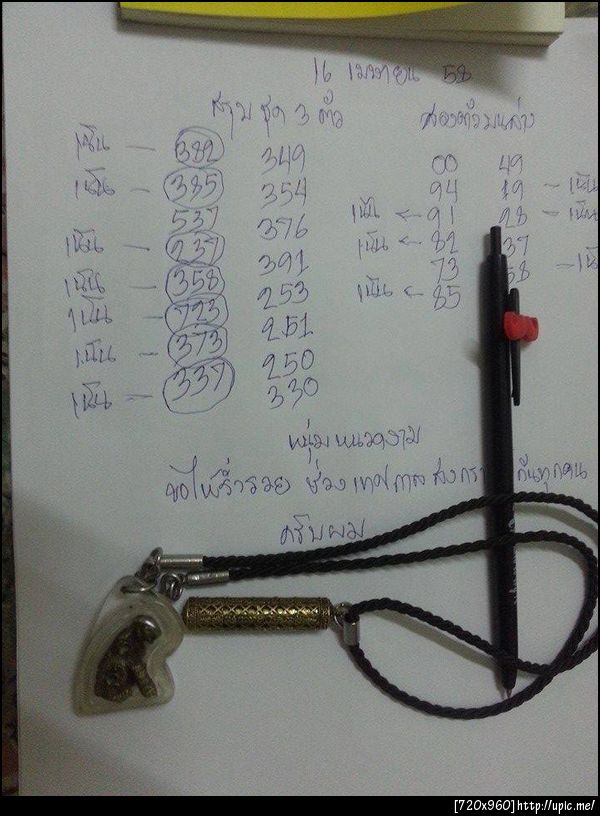 16 เมษายน 58
สรุป ชุด 3 ตัว สองตัวบนล่าง
เน้น — 382 349 00 49
เน้น — 385 354 94 19 — เน้น
537 376 เน้น ← 91 28 — เน้น
เน้น — 237 391 เน้น ← 82 37
เน้น — 358 253 73 58 — เน้
เน้น — 723 251 เน้น ← 85
เน้น — 373 250
เน้น — 337 330
หนุ่มหนวดงาม
ขอให้ร่ำรวย ช่วงเทศกาลสงกรา กันทุกคน
ครับผม
[720x960]http://upic.me/